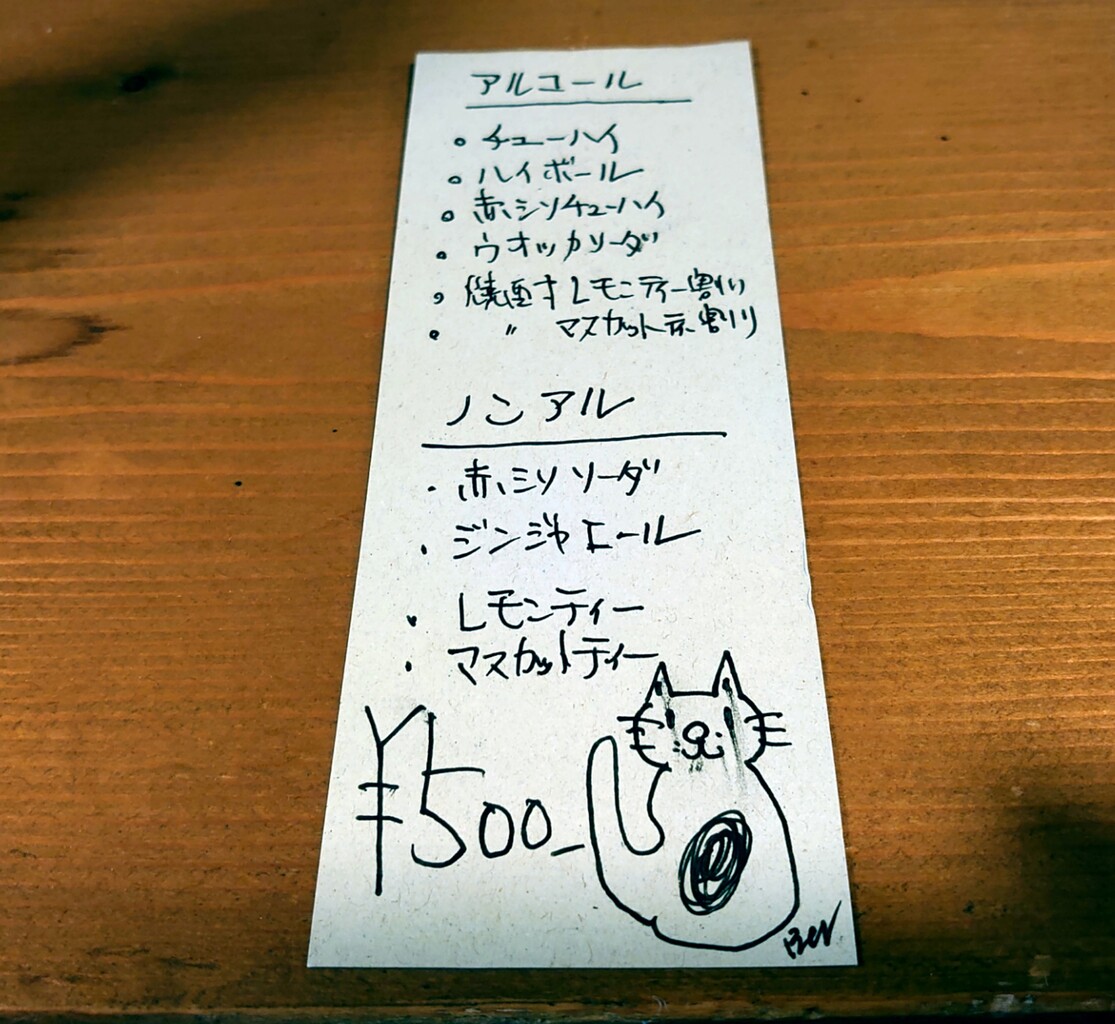 アルコール
• チューハイ
• ハイボール
• 赤シソチューハイ
• ウオッカソーダ
• レモンティー割り
• 〃 マスカットティー割り
ノンアル
• 赤シソソーダ
• ジンジャエール
• レモンティー
• マスカットティー
¥500-